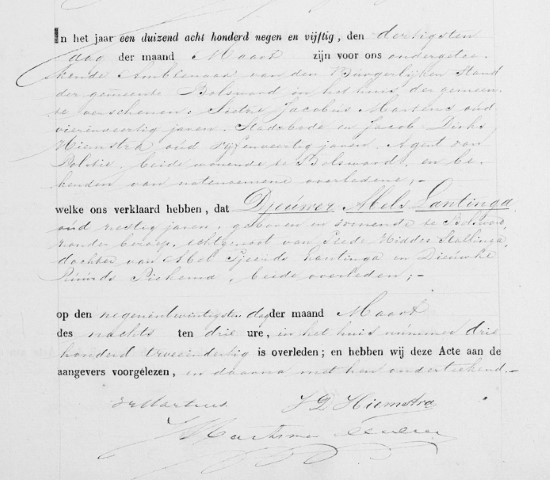 In het jaar een duizend acht honderd negen en vijftig, den dertigsten
dag der maand Maart zijn voor ons ondergetee-
kende Ambtenaar van den Burgerlijken Stand
der gemeente Bolsward, in het huis der gemeen-
te verschenen: Sietse Jacobus Martens oud
vierenveertig jaren, Stadsbode en Jacob Dirks
Hiemstra oud vijfenveertig jaren, Agent van
Politie, beide wonende te Bolsward, en be-
kenden van natenoemene overledene;-
welke ons verklaard hebben, dat Djieuwer Abels Lantinga
oud zestig jaren, geboren en wonende te Bolsward,
zonder beroep, echtgenoot van Hiddes
dochter van Abel Sjoerds Lantinga en Dieuwke
beide overleden;-
op den negenentwintigsten dag der maand Maart
des nachts ten drie ure, in het huis nummer drie
honderd tweeindertig is overleden; en hebben wij deze Acte aan de
aangevers voorgelezen, en daarna met hen onderteekend.-
Martens J D Hiemstra